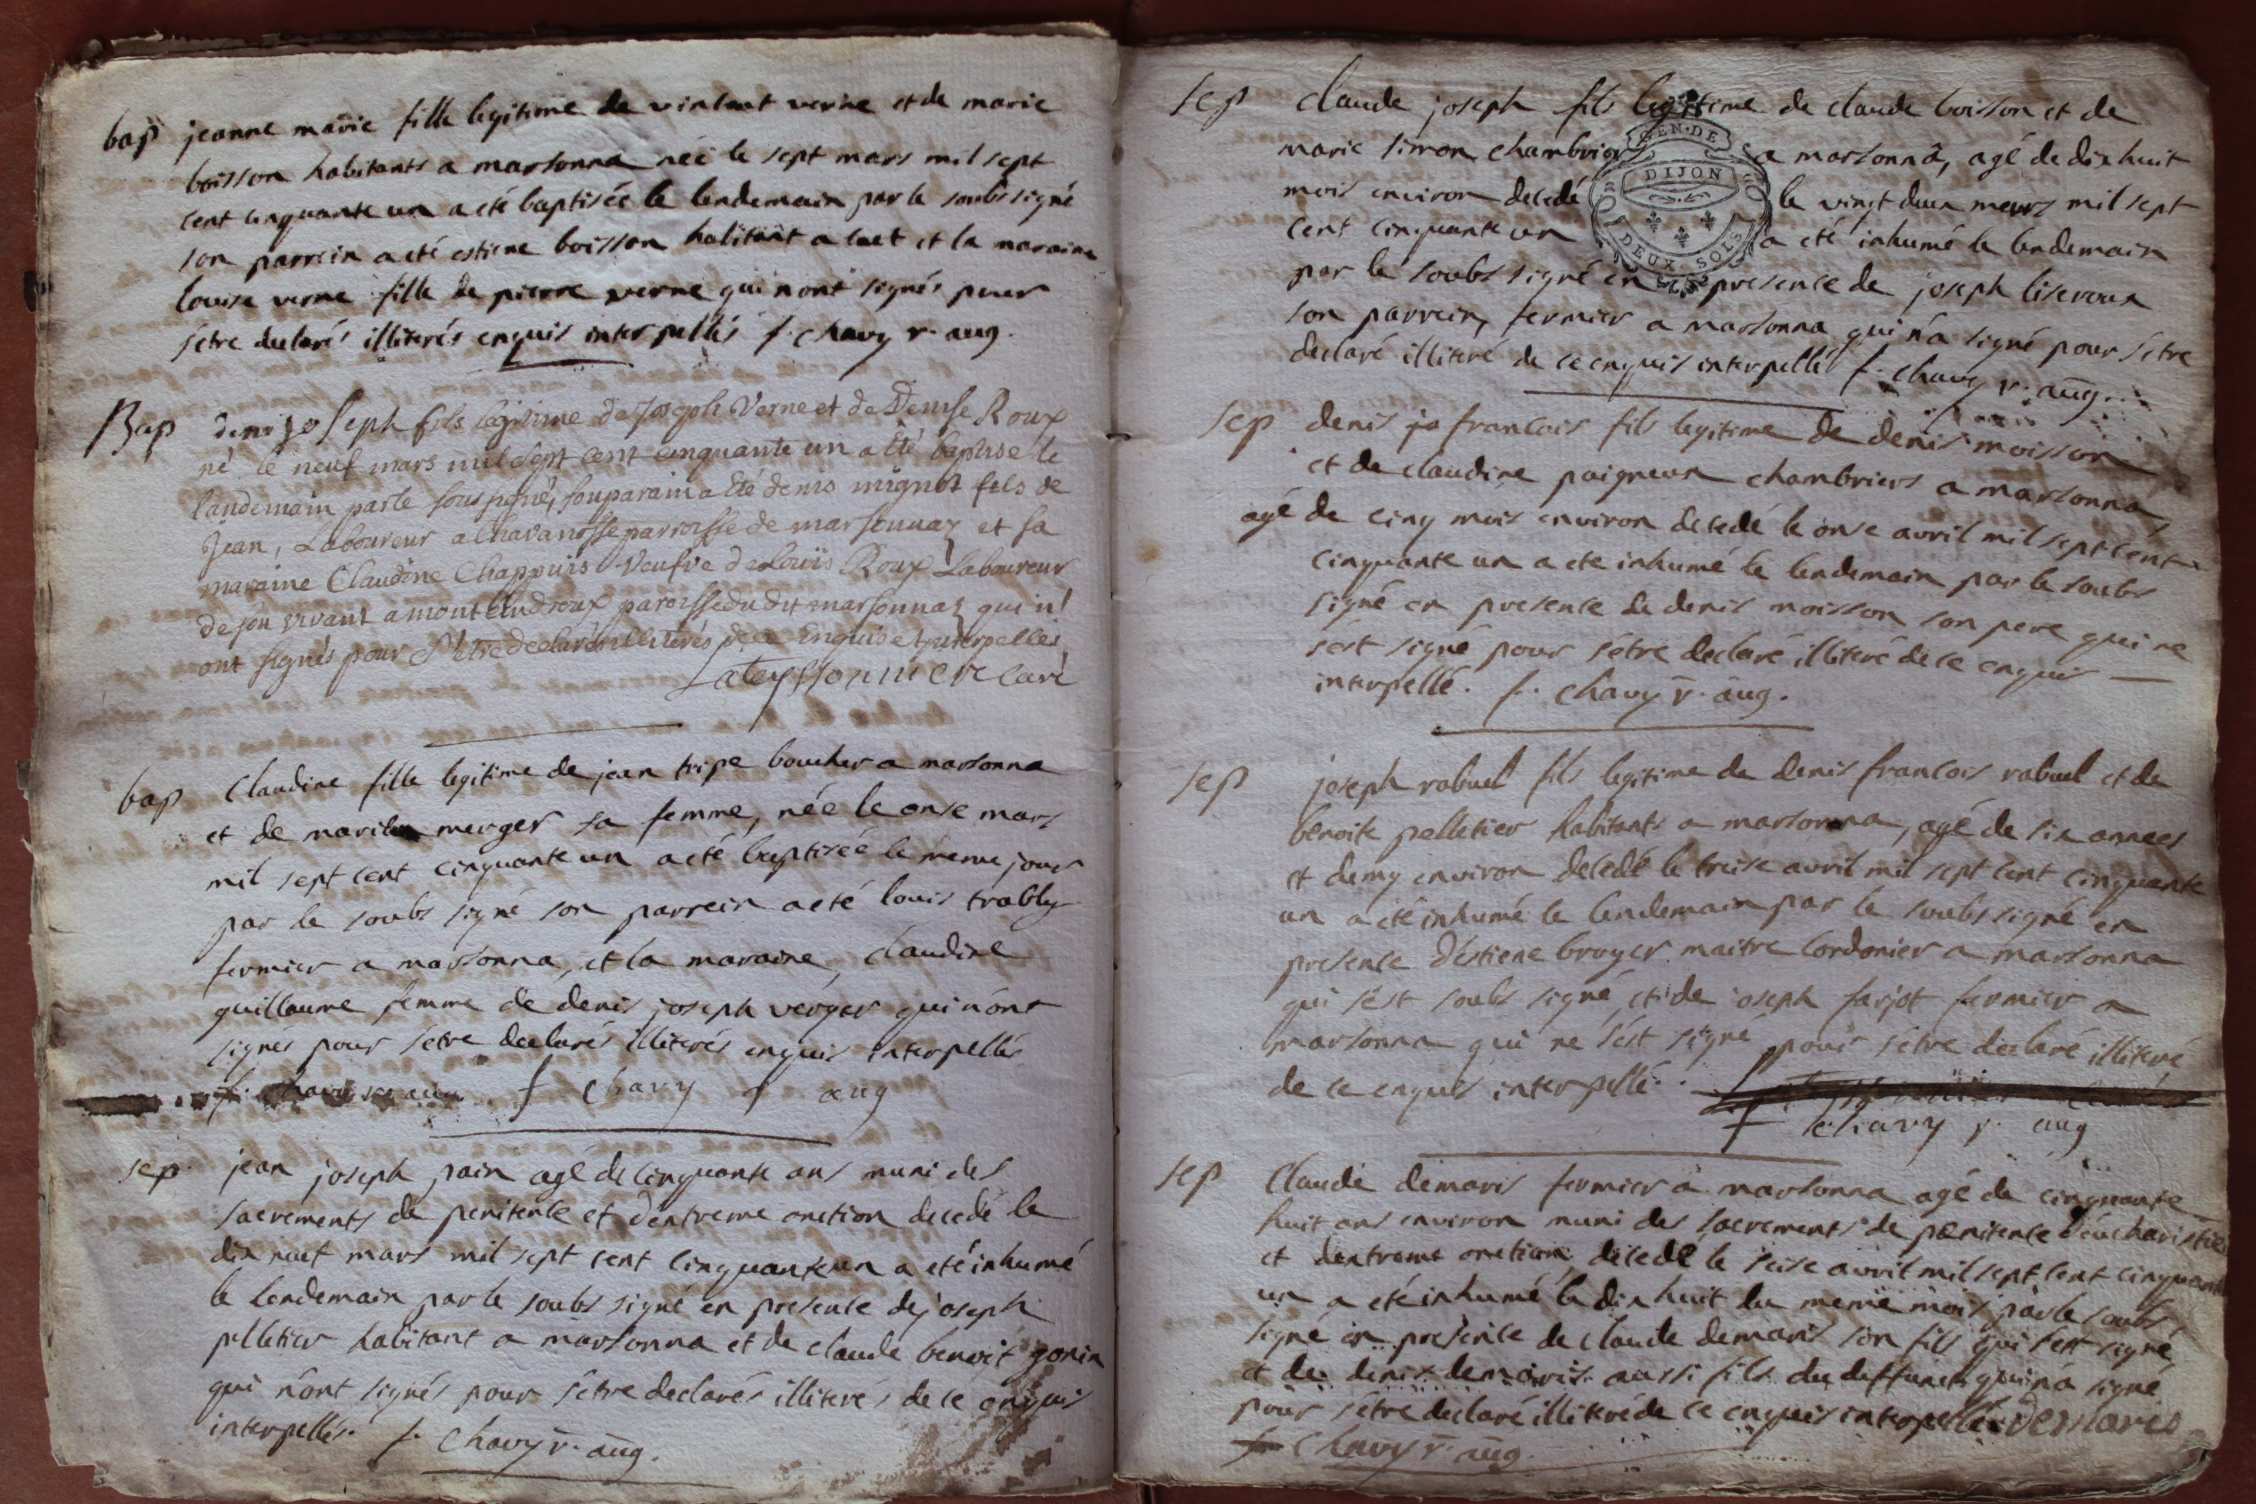 bap jeanne marie fille legitime de vincent verne et de marie
boisson habitants a marsonna née le sept mars mil sept
cent cinquante un a été baptisée le lendemain par le soubs signé
son parrein a été estiene boisson habitant a et la maraine
louise verne fille de pierre verne qui n'ont signés pour
s'étre declarés illiterés enquis interpellés f. chavy r. aug.
Bap denis joseph fils légitime de Joseph Verne et de Denise Roux
né le neuf mars mil sept cent cinquante un a été baptisé le
landemain par le sous signé, son parain a été denis mignot fils de
Jean, Laboureur a Chavanosse parroisse de marsonnaz et sa
maraine Claudine Chappuis veufve de Loüis Roux Laboureur
de son vivant a montlindroux paroisse du dit marsonnaz qui n'
ont signés pour s'être declarés illiterés de ce enquis et interpellés
Lateyssonniere curé
bap Claudine fille legitime de jean tripe boucher a marsonna
et de merger sa femme, née le onse mars
mil sept cent cinquante un a été baptisée le meme jour
par le soubs signé son parrein a été louis trably
fermier a marsonna, et la maraine, claudine
guillaume femme de denis joseph verger qui n'ont
signés pour s'étre declarés illiterés enquis interpellés
f. chavy r. aug f chavy r aug
sep. jean joseph pain agé de cinquante ans muni des
sacrements de penitence et d'extreme onction decedé le
dix neuf mars mil sept cent cinquante un a été inhumé
le lendemain par le soubs signé en presence de joseph
pelletier habitant a marsonna et de claude benoit gonin
qui n'ont signés pour s'étre declarés illiterés de ce enquis
interpellés. f. chavy r. aug.
sep claude joseph fils legitime de claude boisson et de
marie simon chambriers a marsonna, agé de dix huit
mois environ decedé le vingt deux mars mil sept
cent cinquante un a été inhumé le lendemain
par le soubs signé en presence de joseph liseroux
son parrein, fermier a marsonna qui n'a signé pour s'étre
declaré illiteré de ce enquis interpellé f. chavy r. aug.
GEN. DE
DIJON
DEUX SOLS
sep denis jo francois fils legitime de denis moisson
et de claudine paigneux chambriers a marsonna,
agé de cinq mois environ decedé le onse avril mil sept cent
cinquante un a eté inhumé le lendemain par le soubs
signé en presence de denis moisson son pere qui ne
s'est signé pour s'étre declaré illiteré de ce enquis
interpellé. f. chavy r. aug.
sep joseph rabuel fils legitime de denis francois rabuel et de
benoite pelletier habitants a marsonna, agé de six annees
et demy environ decedé le treise avril mil sept cent cinquante
un a été inhumé le lendemain par le soubs signé en
presence d'estiene broyer maitre cordonier a marsonna
qui s'est soubs signé, et de joseph farjot fermier a
marsonna qui ne s'est signé pour s'étre declaré illiteré
de ce enquis interpellé.
f chavy r. aug
sep Claude demaris fermier a marsonna agé de cinquante
huit ans environ muni des sacrements de pœnitence d'eucharistie
et d'extreme onction, decedé le seise avril mil sept cent cinquante
un a été inhumé le dix huit du meme mois par le soubs
signé en presence de claude demaris son fils qui s'est signé
et de denis demaris aussi fils du deffunct qui n'a signé
pour s'étre declaré illiteré de ce enquis interpellé. demaris
f chavy r. aug.